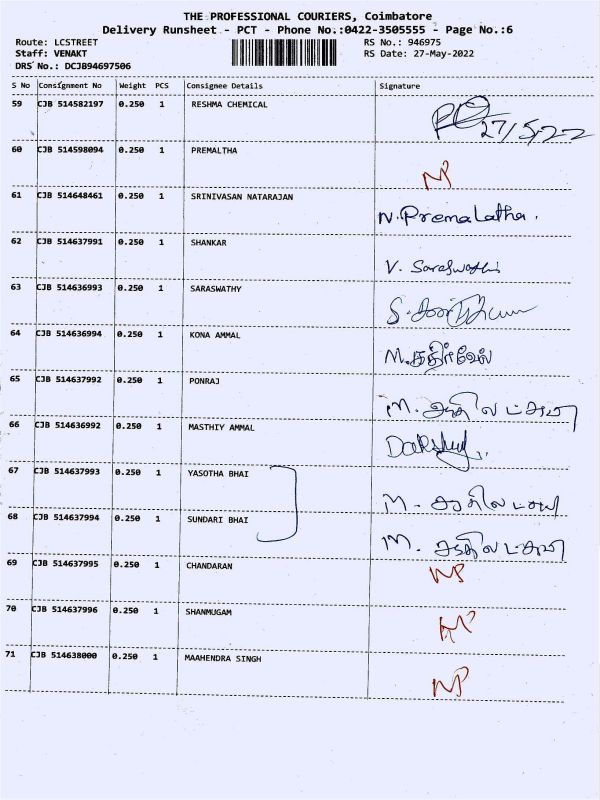 THE PROFESSIONAL COURIERS, Coimbatore
Delivery Runsheet - PCT - Phone No.:0422-3505555 - Page No.:6
Route: LCSTREET RS No.: 946975
Staff: VENAKT RS Date: 27-May-2022
DRS No.: DCJB94697506
S No Consignment No Weight PCS Consignee Details Signature
59 CJB 514582197 0.250 1 RESHMA CHEMICAL
27/5/22
60 CJB 514598094 0.250 1 PREMALTHA
NP
61 CJB 514648461 0.250 1 SRINIVASAN NATARAJAN
N. Premalatha.
62 CJB 514637991 0.250 1 SHANKAR
V. Saraswathi
63 CJB 514636993 0.250 1 SARASWATHY
64 CJB 514636994 0.250 1 KONA AMMAL
M. கதிர்வேல்
65 CJB 514637992 0.250 1 PONRAJ
M.
66 CJB 514636992 0.250 1 MASTHIY AMMAL
67 CJB 514637993 0.250 1 YASOTHA BHAI
M.
68 CJB 514637994 0.250 1 SUNDARI BHAI
M.
69 CJB 514637995 0.250 1 CHANDARAN
NP
70 CJB 514637996 0.250 1 SHANMUGAM
NP
71 CJB 514638000 0.250 1 MAAHENDRA SINGH
NP